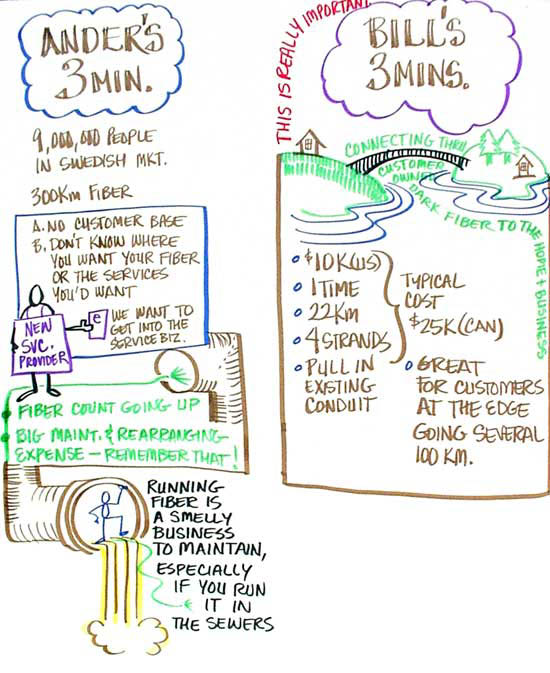 ANDER'S
3 MIN.
9,000,000 PEOPLE
IN SWEDISH MKT.
300Km FIBER
A. NO CUSTOMER BASE
B. DON'T KNOW WHERE
YOU WANT YOUR FIBER
OR THE SERVICES
YOU'D WANT
e
WE WANT TO
GET INTO THE
SERVICE BIZ.
NEW
SVC.
PROVIDER
• FIBER COUNT GOING UP
• BIG MAINT. & REARRANGING
EXPENSE – REMEMBER THAT!
RUNNING
FIBER IS
A SMELLY
BUSINESS
TO MAINTAIN,
ESPECIALLY
IF YOU RUN
IT IN
THE SEWERS
THIS IS REALLY IMPORTANT
BILL'S
3 MINS.
CONNECTING THRU
CUSTOMER
OWNED
DARK FIBER TO THE HOME & BUSINESS
• $10K(US)
• 1 TIME
• 22Km
• 4 STRANDS
• PULL IN
EXISTING
CONDUIT
TYPICAL
COST
$25K (CAN)
• GREAT
FOR CUSTOMERS
AT THE EDGE
GOING SEVERAL
100 KM.